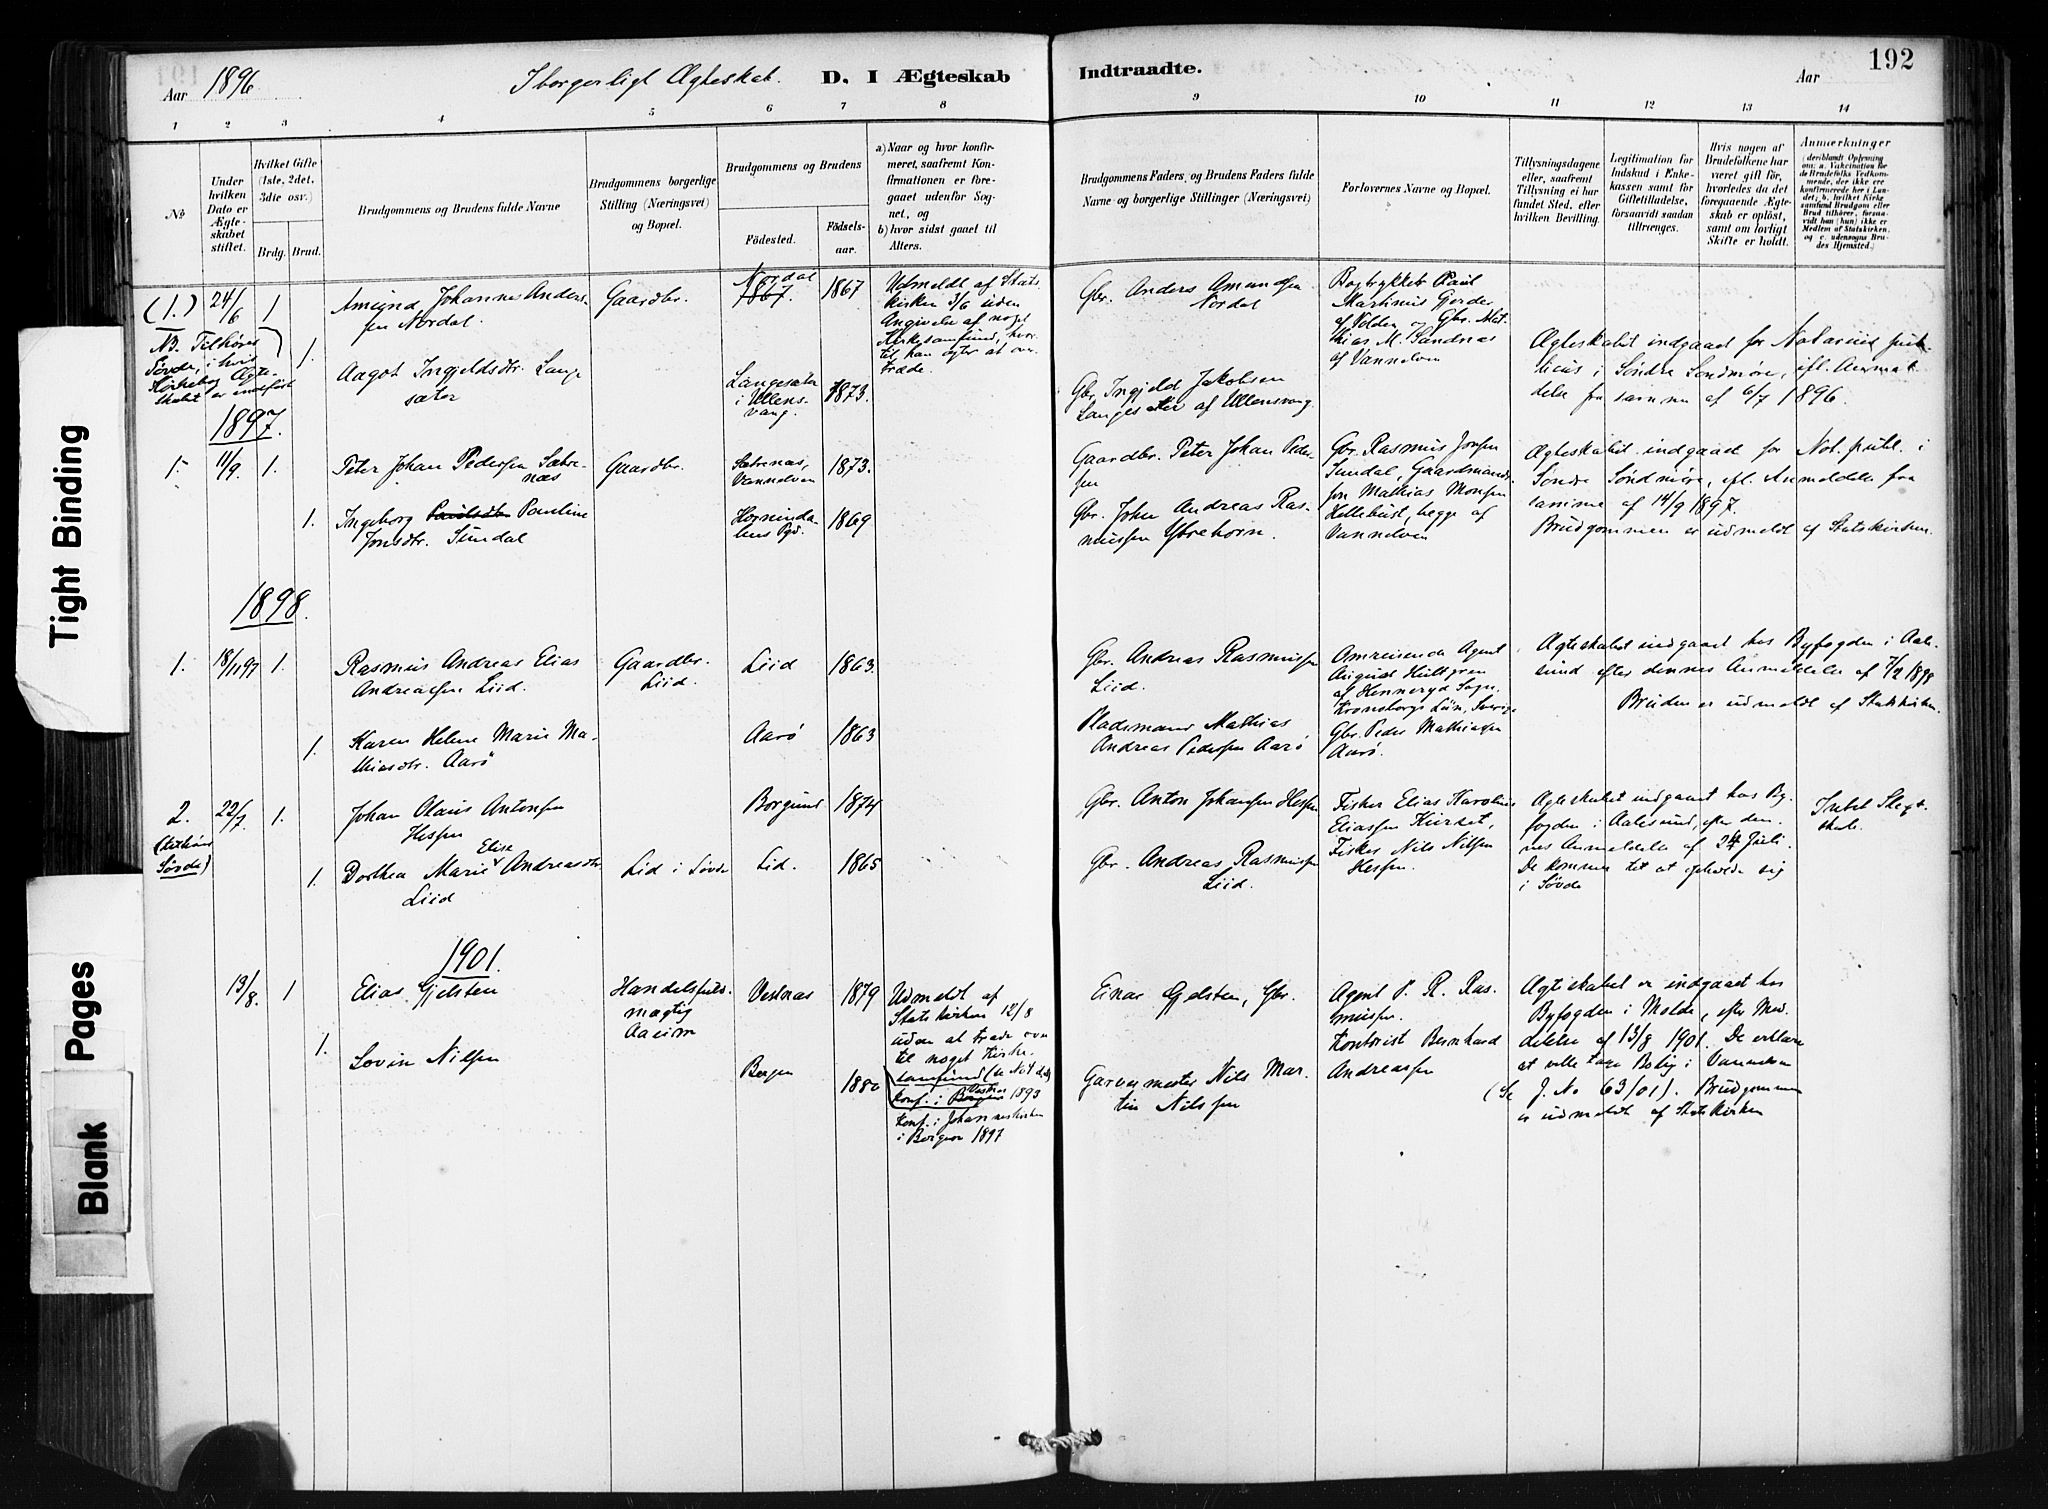 Aar 1896
I borgerligt Ægteskab.
D. I Ægteskab
Indtraadte.
Aar
192
1 2 3 4 5 6 7 8 9 10 11 12 13 14
No
Under hvilken Dato er Ægteskabet stiftet.
Hvilket Gifte (1ste, 2det, 3die osv.)
Brdg. Brud.
Brudgommens og Brudens fulde Navne
Brudgommens borgerlige Stilling (Næringsvei) og Bopæl.
Brudgommens og Brudens
Fødested.
Fødselsaar.
a) Naar og hvor konfirmeret, saafremt Konfirmationen er foregaaet udenfor Sognet, og
b) hvor sidst gaaet til Alters.
Brudgommens Faders og Brudens Faders fulde Navne og borgerlige Stillinger (Næringsvei)
Forlovernes Navne og Bopæl.
Tillysningsdagene eller, saafremt Tillysning ei har fundet Sted, efter hvilken Bevilling.
Legitimation for Indskud i Enkekassen samt for Giftetilladelse, forsaavidt saadan tiltrænges.
Hvis nogen af Brudefolkene har været gift før, hvorledes da det foregaaende Ægteskab er opløst, samt om lovligt Skifte er holdt.
Anmerkninger
(deriblandt Oplysning om: a. Vakcination for de Brudefolks Vedkommende, der ikke ere konfirmerede her i Landet; b. hvilket Kirkesamfund Brudgom eller Brud tilhører, forsaavidt han (hun) ikke er Medlem af Statskirken, og c. udensogns Brudes Hjemsted.)
(1.) 24/6 1
Amund Johannes Andersen Nordal.
Gaardbr.
Nordal
1867.
1867
Udmeldt af Statskirken 3/6 uden Angivelse af noget Kirkesamfund, hvortil han agter at overtræde.
Gbr. Anders Amundsen Nordal
Bogtrykker Paul Martinus Gjerde af Volden, Gbr. Mathias M. Sandnes af Vannelven
NB. Tilhører Søvde, i hvis Kirkebog Ægteskabet er indført
1.
Aagot Ingjeldsdtr. Langesæter
Langesæter i Ullensvang.
1873.
Gbr. Ingjeld Jakobsen Langesæter af Ullensvang
Ægteskabet indgaaet for Notarius publicus i Søndre Søndmøre, efl. Anmeldelse fra samme af 6/7 1896.
1897.
1. 11/9 1.
Peter Johan Pedersen Sætrenæs
Gaardbr.
Sætrenæs, Vannelven
1873.
Gaardbr. Peter Johan Pedersen
Gbr. Rasmus Jonsen Sundal, Gaardmandssøn Mathias Monsen Hellebust, begge af Vannelven
Ægteskabet indgaaet for Not. publ. i Søndre Søndmøre, efl. Anmeldelse fra samme af 14/9 1897.
Brudgommen er udmeldt af Statskirken.
1.
Ingeborg Pauline Jonsdtr. Sundal
Hornindalens Pgd.
1869
Gbr. John Andreas Rasmussen Ytrehorn.
1898.
1. 18/11 97 1.
Rasmus Andreas Elias Andreassen Liid.
Gaardbr. Liid.
Liid
1863.
Gbr. Andreas Rasmussen Liid.
Omreisende Agent August Hultgren af Henneryd Sogn, Kronobergs Län, Sverige
Ægteskabet indgaaet hos Byfogden i Aalesund efter dennes Anmeldelse af 7/2 1898
Bruden er udmeldt af Statskirken.
1.
Karen Helene Marie Mathiasdtr. Aarø
Aarø
1863
Pladsmand Mathias Andreas Pedersen Aarø
Gbr. Peder Mathiasen Aarø.
2. 22/7. 1.
Johan Olaus Antonsen Hessen
Borgund
1874
Gbr. Anton Johansen Hessen
Fisker Elias Karolius Eliassen Kurset, Fisker Nils Nilsen Hessen.
Ægteskabet indgaaet hos Byfogden i Aalesund, efter dennes Anmeldelse af 24 Juli.
De kommer til at opholde sig i Søvde
Intet Slegtskab.
Søvde)
1.
Dorthea Marie Elise Andreasdtr. Liid
Lid i Søvde
Lid.
1865
Gbr. Andreas Rasmussen Liid.
1901.
13/8. 1
Elias Gjelsten
Handelsfuldmægtig Aaeim
Vestnæs
1879
Udmeldt af Statskirken 12/8 uden at træde over til noget Kirkesamfund
Konf. i Vestnæs 1893
Einar Gjelsten, Gbr.
Agent P. R. Rasmussen.
Kontorist Bernhard Andreassen
Ægteskabet er indgaaet hos Byfogden i Molde, efter Meddelelse af 13/8 1901. De erklære at ville tage Bolig i Vannelven (Se J. No 63/01). Brudgommen er udmeldt af Statskirken
1.
Lovin Nilsen
Bergen
1880
Konf. i Johanneskirken i Bergen 1897
Garvermester Nils Martin Nilssen
Tight Binding
Blank Pages